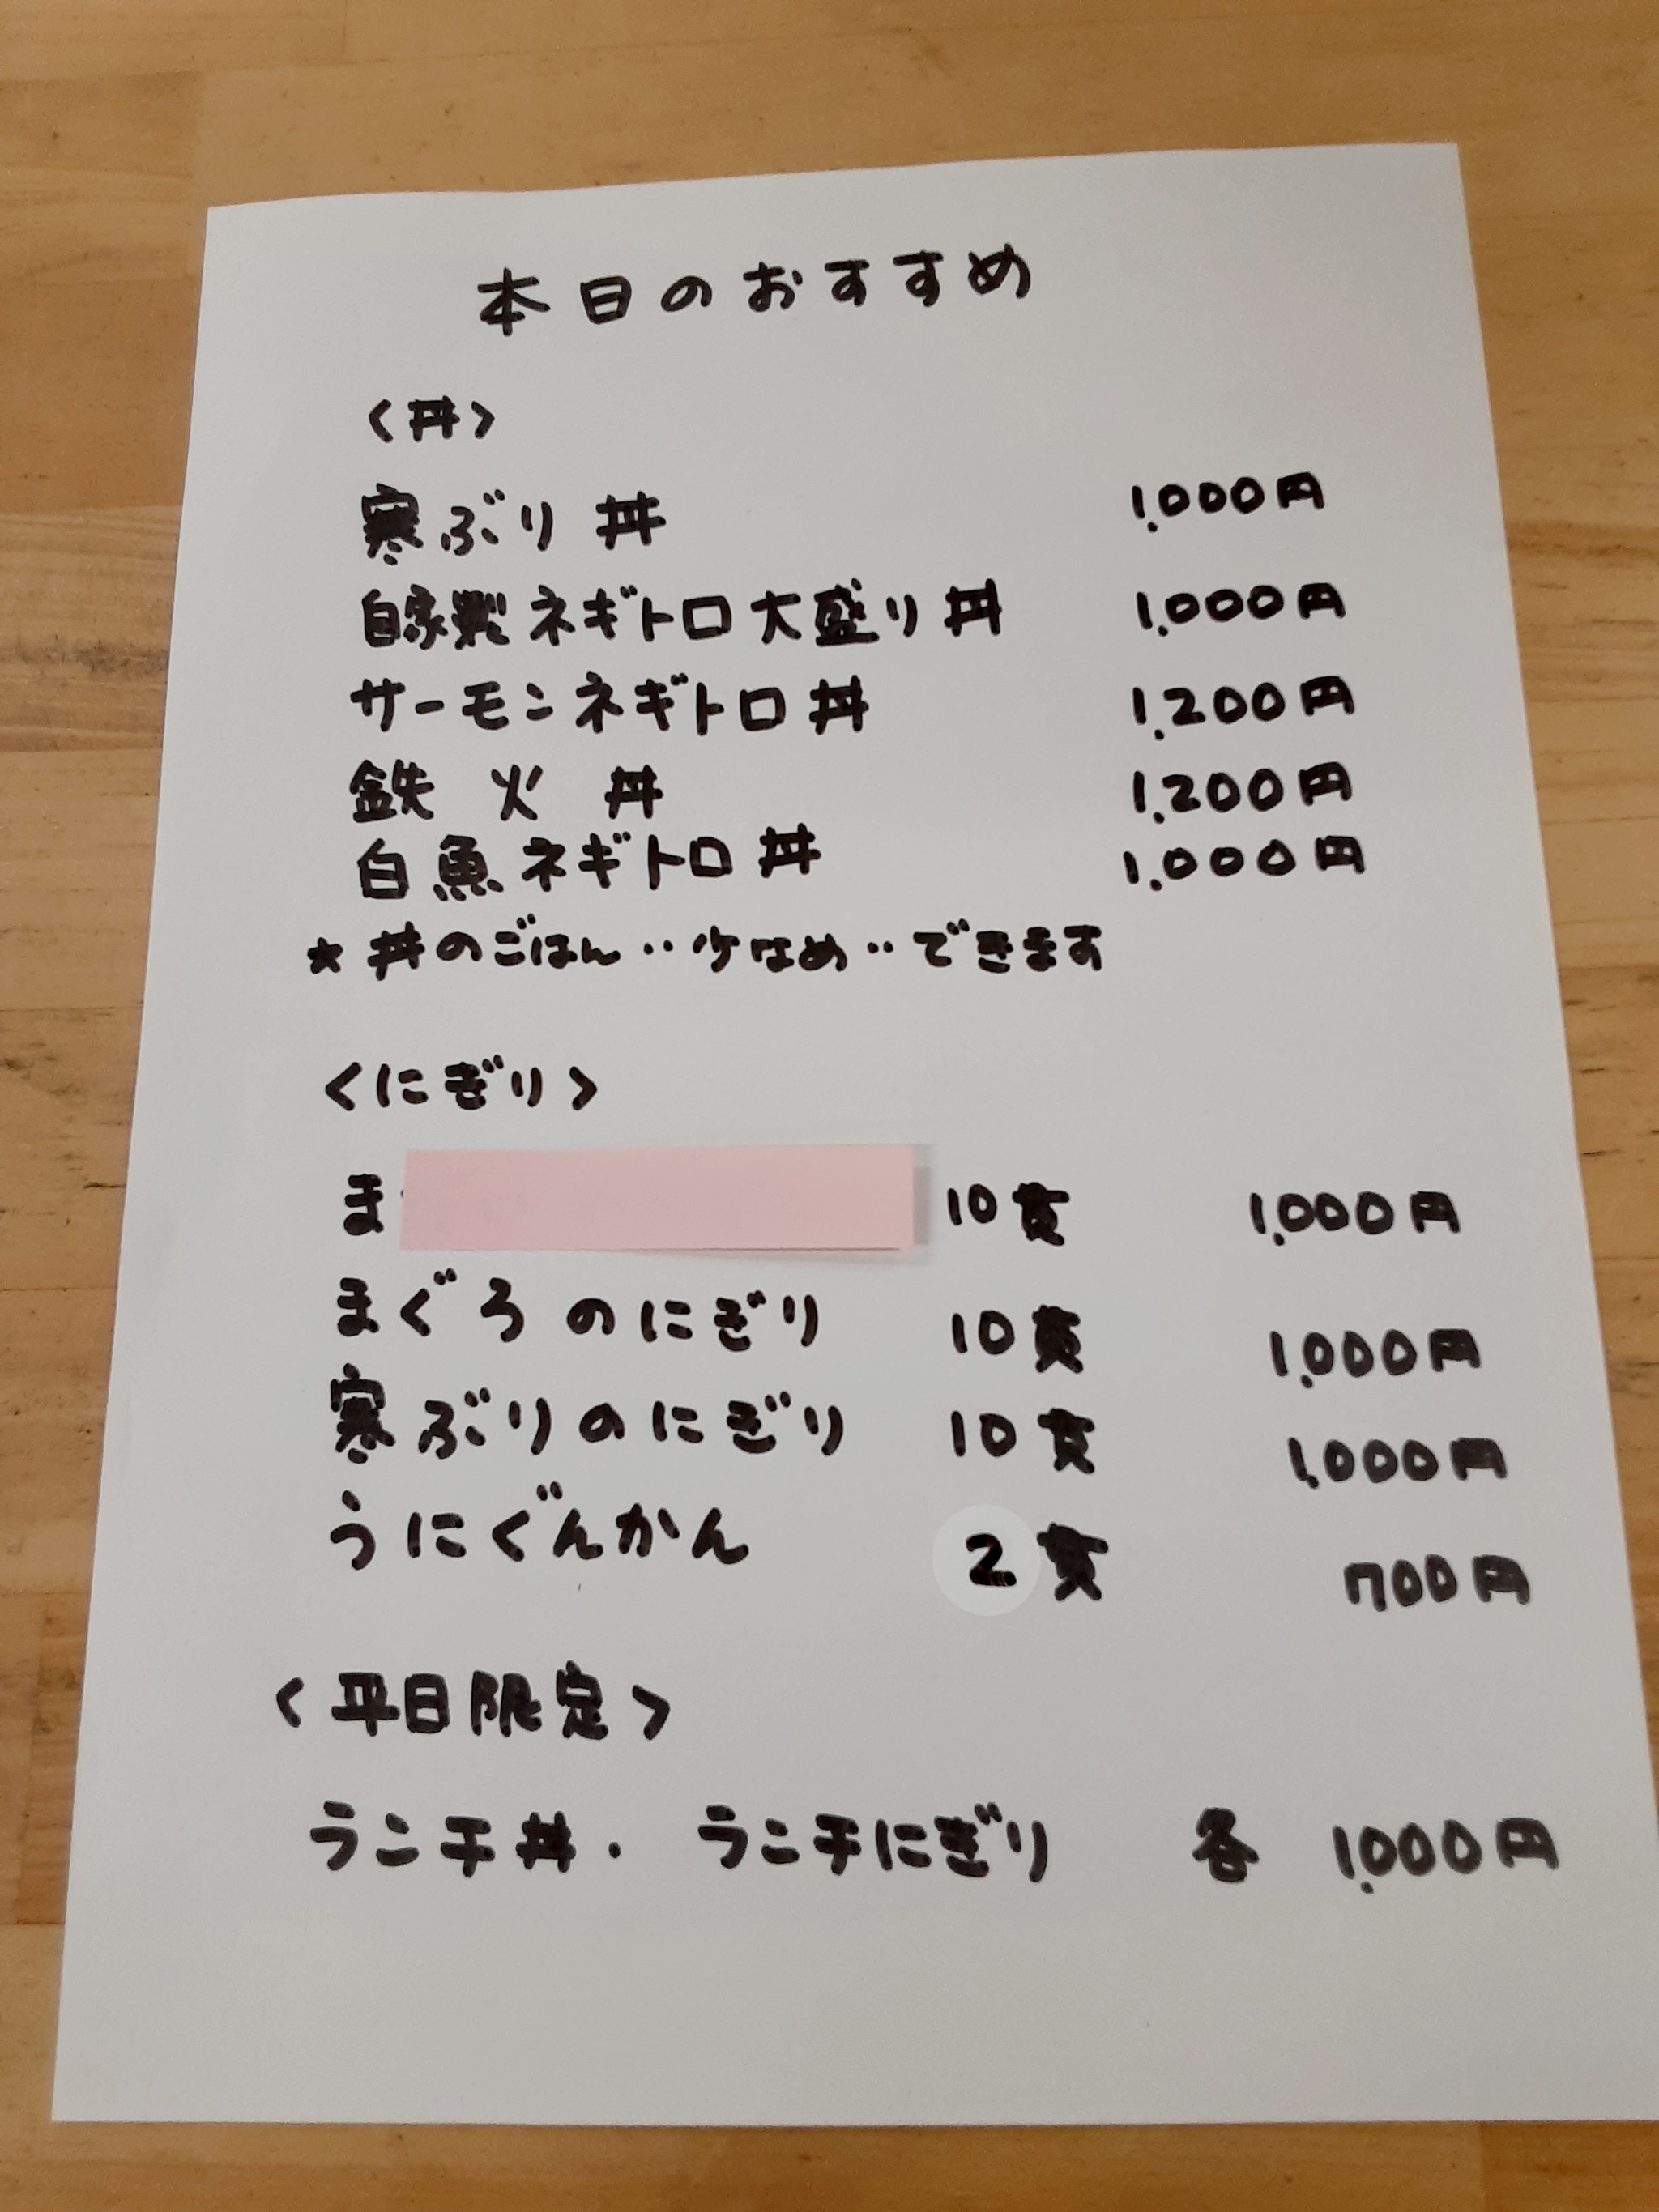 本日のおすすめ
<丼>
寒ぶり丼 1,000円
自家製ネギトロ大盛り丼 1,000円
サーモンネギトロ丼 1,200円
鉄火丼 1,200円
白魚ネギトロ丼 1,000円
★丼のごはん‥少なめ‥できます
<にぎり>
ま 10貫 1,000円
まぐろのにぎり 10貫 1,000円
寒ぶりのにぎり 10貫 1,000円
うにぐんかん 2貫 700円
<平日限定>
ランチ丼・ランチにぎり 各 1,000円